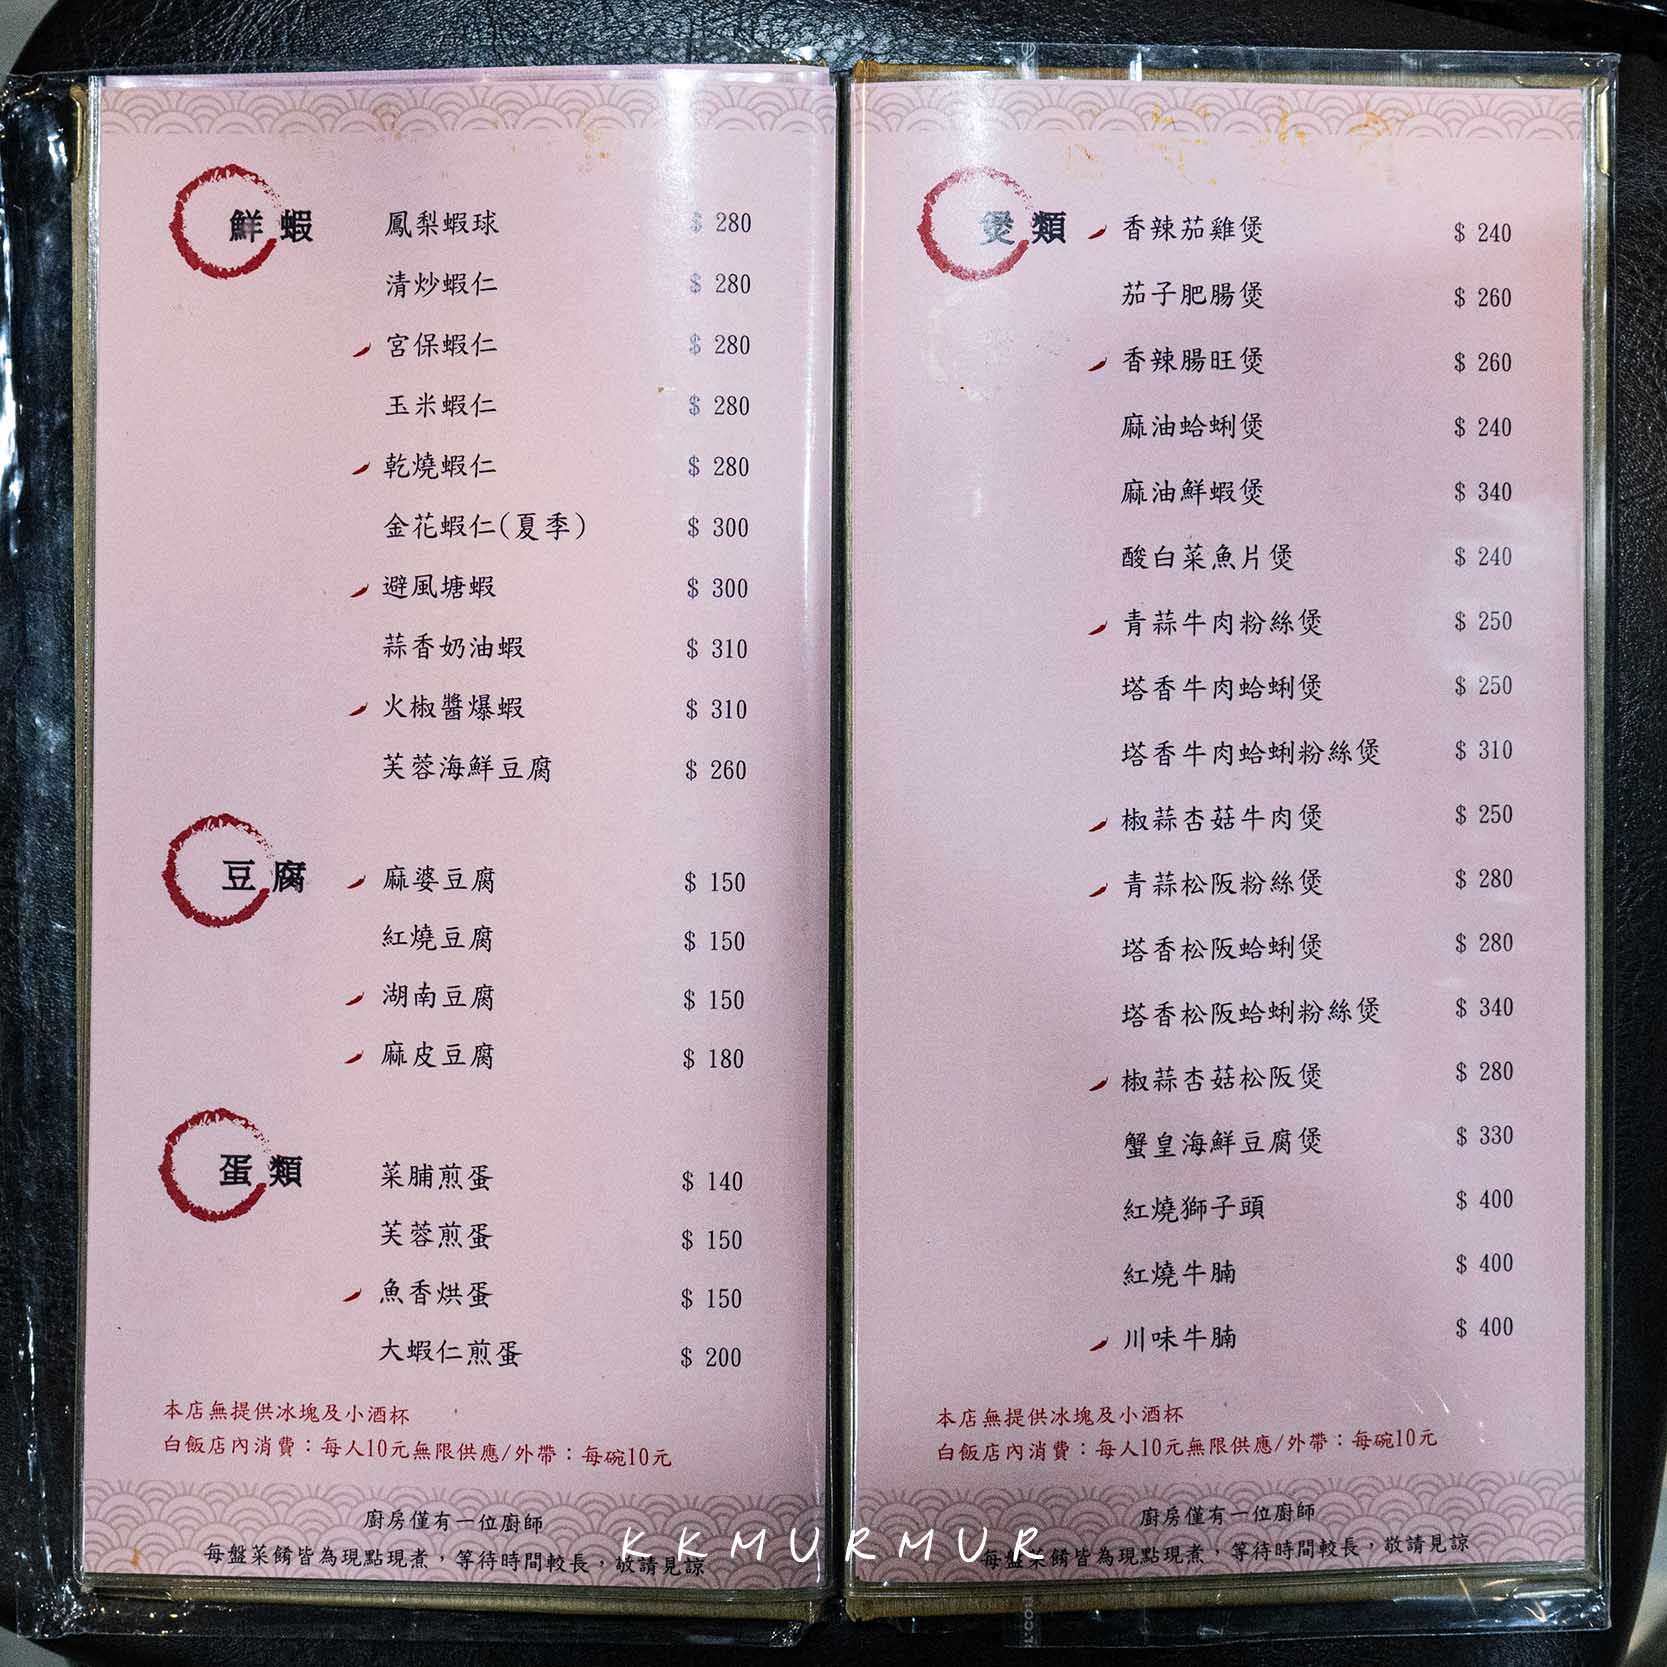 鮮蝦
鳳梨蝦球 $ 280
清炒蝦仁 $ 280
宮保蝦仁 $ 280
玉米蝦仁 $ 280
乾燒蝦仁 $ 280
金花蝦仁(夏季) $ 300
避風塘蝦 $ 300
蒜香奶油蝦 $ 310
火椒醬爆蝦 $ 310
芙蓉海鮮豆腐 $ 260
豆腐
麻婆豆腐 $ 150
紅燒豆腐 $ 150
湖南豆腐 $ 150
麻皮豆腐 $ 180
蛋類
菜脯煎蛋 $ 140
芙蓉煎蛋 $ 150
魚香烘蛋 $ 150
大蝦仁煎蛋 $ 200
本店無提供冰塊及小酒杯
白飯店內消費：每人10元無限供應/外帶：每碗10元
廚房僅有一位廚師
每盤菜餚皆為現點現煮，等待時間較長，敬請見諒
煲類
香辣茄雞煲 $ 240
茄子肥腸煲 $ 260
香辣腸旺煲 $ 260
麻油蛤蜊煲 $ 240
麻油鮮蝦煲 $ 340
酸白菜魚片煲 $ 240
青蒜牛肉粉絲煲 $ 250
塔香牛肉蛤蜊煲 $ 250
塔香牛肉蛤蜊粉絲煲 $ 310
椒蒜杏菇牛肉煲 $ 250
青蒜松阪粉絲煲 $ 280
塔香松阪蛤蜊煲 $ 280
塔香松阪蛤蜊粉絲煲 $ 340
椒蒜杏菇松阪煲 $ 280
蟹皇海鮮豆腐煲 $ 330
紅燒獅子頭 $ 400
紅燒牛腩 $ 400
川味牛腩 $ 400
本店無提供冰塊及小酒杯
白飯店內消費：每人10元無限供應/外帶：每碗10元
廚房僅有一位廚師
每盤菜餚皆為現點現煮，等待時間較長，敬請見諒
KKMURMUR